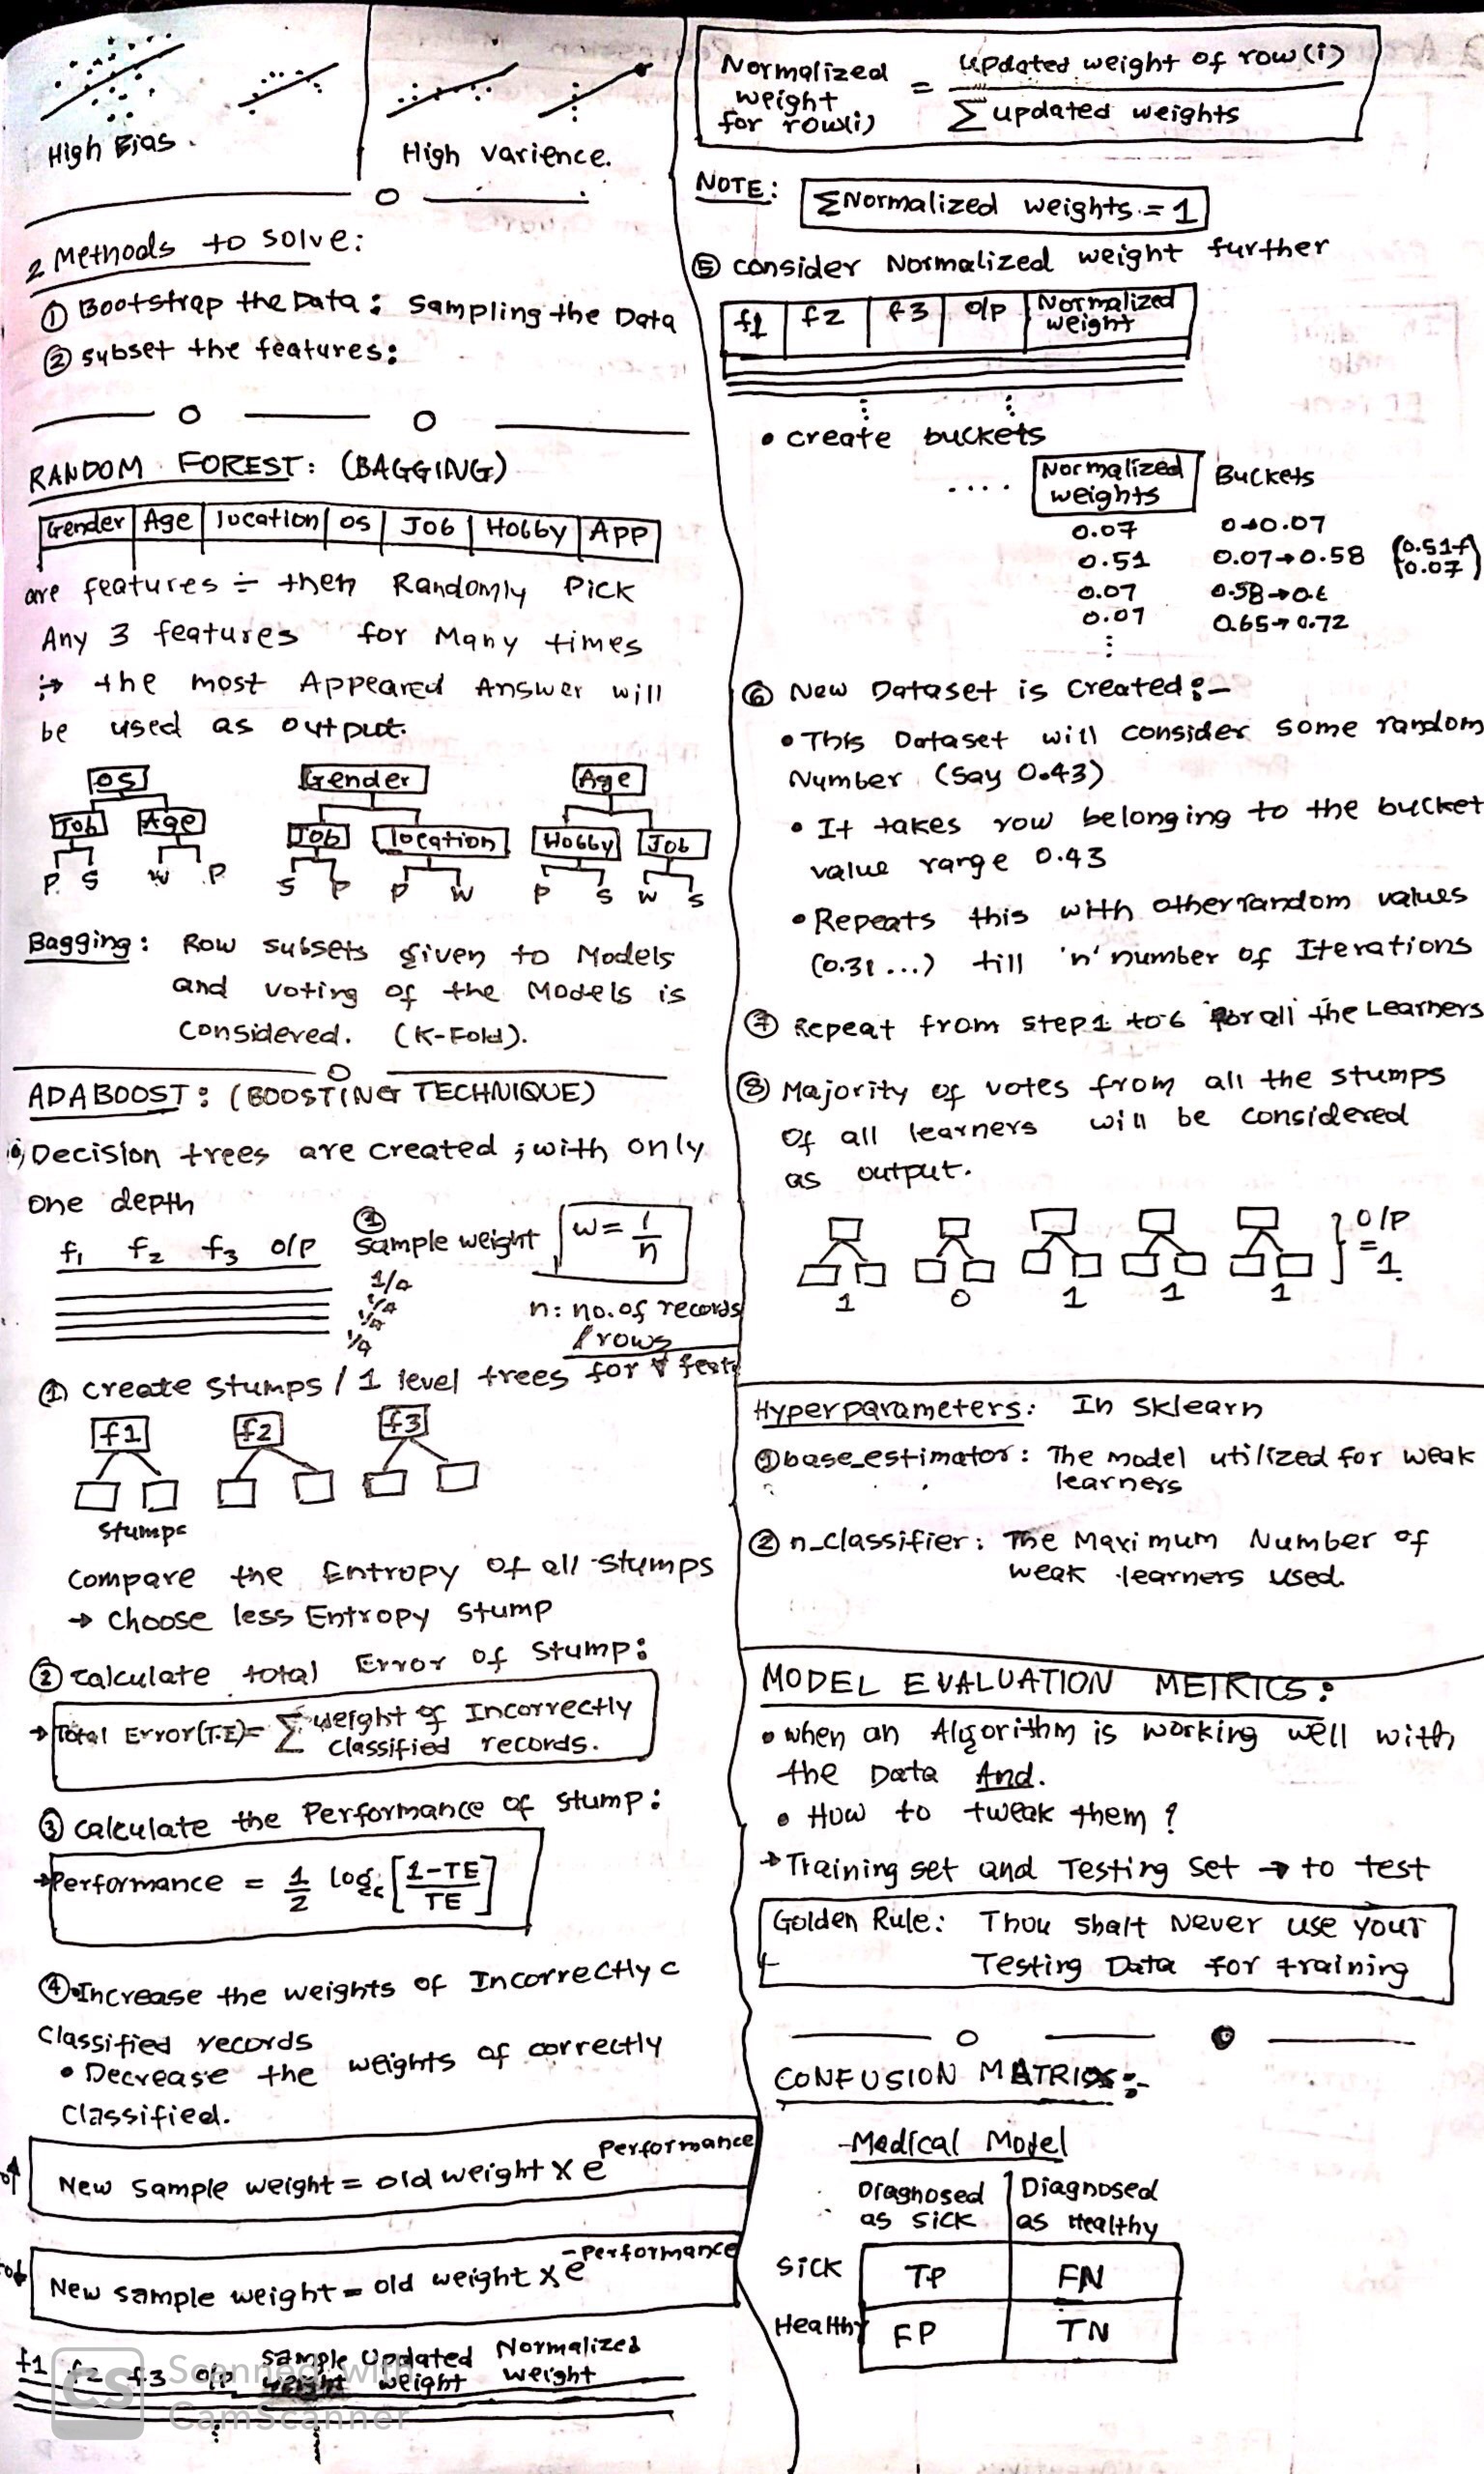 High Bias.
High varience.
2 Methods to solve:
① Bootstrap the Data: Sampling the Data
② subset the features:
RANDOM FOREST: (BAGGING)
Gender Age location os Job Hobby App
are features ÷ then Randomly Pick
Any 3 features for Many times
the most Appeared Answer will
be used as output.
os Gender Age
Job Age Job location Hobby Job
P S W P S P P W P S W S
Bagging: Row subsets given to Models
and voting of the Models is
considered. (K-Fold).
ADABOOST: (BOOSTING TECHNIQUE)
Decision trees are created ; with only
one depth
f1 f2 f3 o/p sample weight w = 1/n
n: no. of records
/rows
① create stumps / 1 level trees for ∀
f1 f2 f3
stumps
compare the Entropy of all stumps
→ choose less Entropy stump
② calculate total Error of stump:
→ Total Error(T.E)= ∑ weight of Incorrectly
classified records.
③ calculate the Performance of stump:
→Performance = 1/2 log [1-TE/TE]
④•Increase the weights of Incorrectly c
classified records
• Decrease the weights of correctly
classified.
New sample weight = old weight x e^Performance
New sample weight = old weight x e^-performance
f1 f2 f3 o/p sample weight Updated weight Normalized weight
Scanned with
CamScanner
Normalized weight for row(i) = updated weight of row(i) / ∑ updated weights
NOTE: ∑Normalized weights = 1
⑤ consider Normalized weight further
f1 f2 f3 o/p Normalized weight
• create buckets
.... Normalized weights Buckets
0.07 0→0.07
0.51 0.07→0.58 (0.51+0.07)
0.07 0.58→0.6
0.07 0.65→0.72
⑥ New Dataset is created:-
• This Dataset will consider some random
Number (say 0.43)
• It takes row belonging to the bucket
value range 0.43
• Repeats this with other random values
(0.31...) till 'n' number of Iterations
⑦ Repeat from step1 to 6 for all the Learners
⑧ Majority of votes from all the stumps
of all learners will be considered
as output.
1 0 1 1 1 } O/P = 1.
Hyperparameters: In Sklearn
① base_estimator: The model utilized for weak
learners
② n_classifier: The Maximum Number of
weak learners used.
MODEL EVALUATION METRICS:
• when an Algorithm is working well with
the Data And.
• How to tweak them?
→ Training set and Testing set → to test
Golden Rule: Thou shalt Never use your
Testing Data for training
CONFUSION MATRIX:-
-Medical Model
Diagnosed as sick Diagnosed as Healthy
Sick TP FN
Healthy FP TN